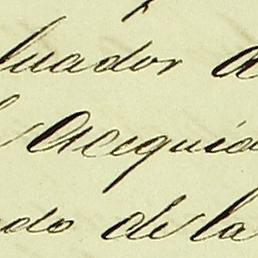 luador a
l Acequia
do de la